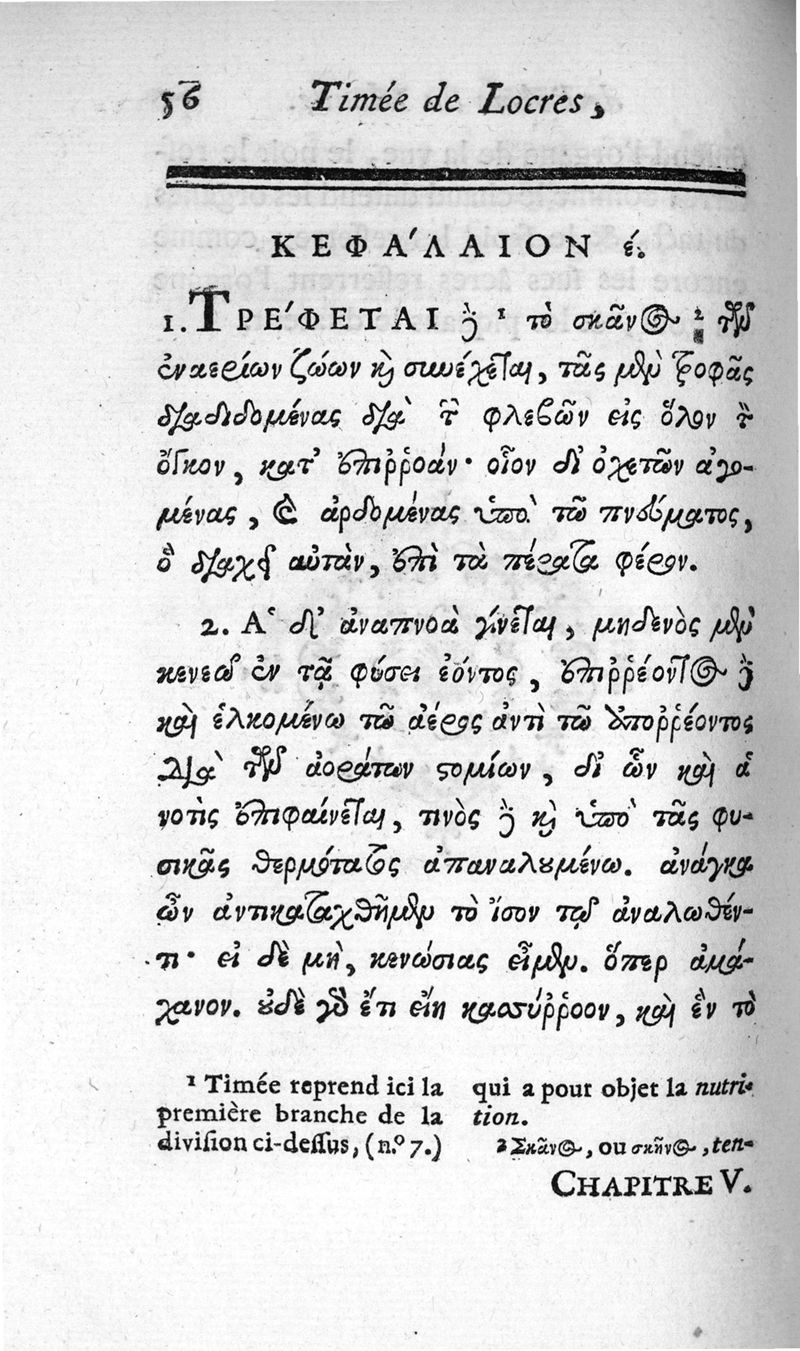 56 Timée de Locres,
ΚΕΦΑ΄ΛΑΙΟΝ έ.
1. ΤΡΕ΄ΦΕΤΑΙ δὲ ¹ τὸ σκᾶνος ² τῶν
ἐναερίων ζώων καὶ συνέχεται, τὰς μὲν τροφᾶς
διαδιδομένας διὰ τῶν φλεβῶν εἰς ὅλον τὸν
ὄγκον, κατ' ἐπιῤῥοάν· οἷον δι ὀχετῶν ἀγο-
μένας, καὶ ἀρδομένας ὑπὸ τῶ πνεύματος,
ὃ διαχεῖ αὐτὰν, ἐπὶ τὰ πέρατα φέρον.
2. Α῾ δι' ἀναπνοὰ γίνεται, μηδενὸς μὲν
κενεοῦ ἐν τᾷ φύσει ἐόντος, ἐπιῤῥέοντος δὲ
καὶ ἑλκομένω τῶ ἀέρος ἀντὶ τῶ ἀποῤῥέοντος
διὰ τῶν ἀοράτων στομίων, δι ὧν καὶ ἁ
νοτὶς ἐπιφαίνεται, τινὸς δὲ καὶ ὑπὸ τᾶς φυ-
σικᾶς θερμότατος ἀπαναλουμένω. ἀνάγκα
ὦν ἀντικαταχθῆμεν τὸ ἴσον τῷ ἀναλωθέν-
τι· εἰ δὲ μὴ, κενώσιας εἶμεν. ὅπερ ἀμά-
χανον. οὐδὲ γὰρ ἔτι εἴη κασύῤῥοον, καὶ ἓν τὸ
¹ Timée reprend ici la
première branche de la
division ci-dessus, (n.º 7.)
qui a pour objet la nutri-
tion.
² Σκᾶνος, ou σκῆνος, ten-
CHAPITRE V.